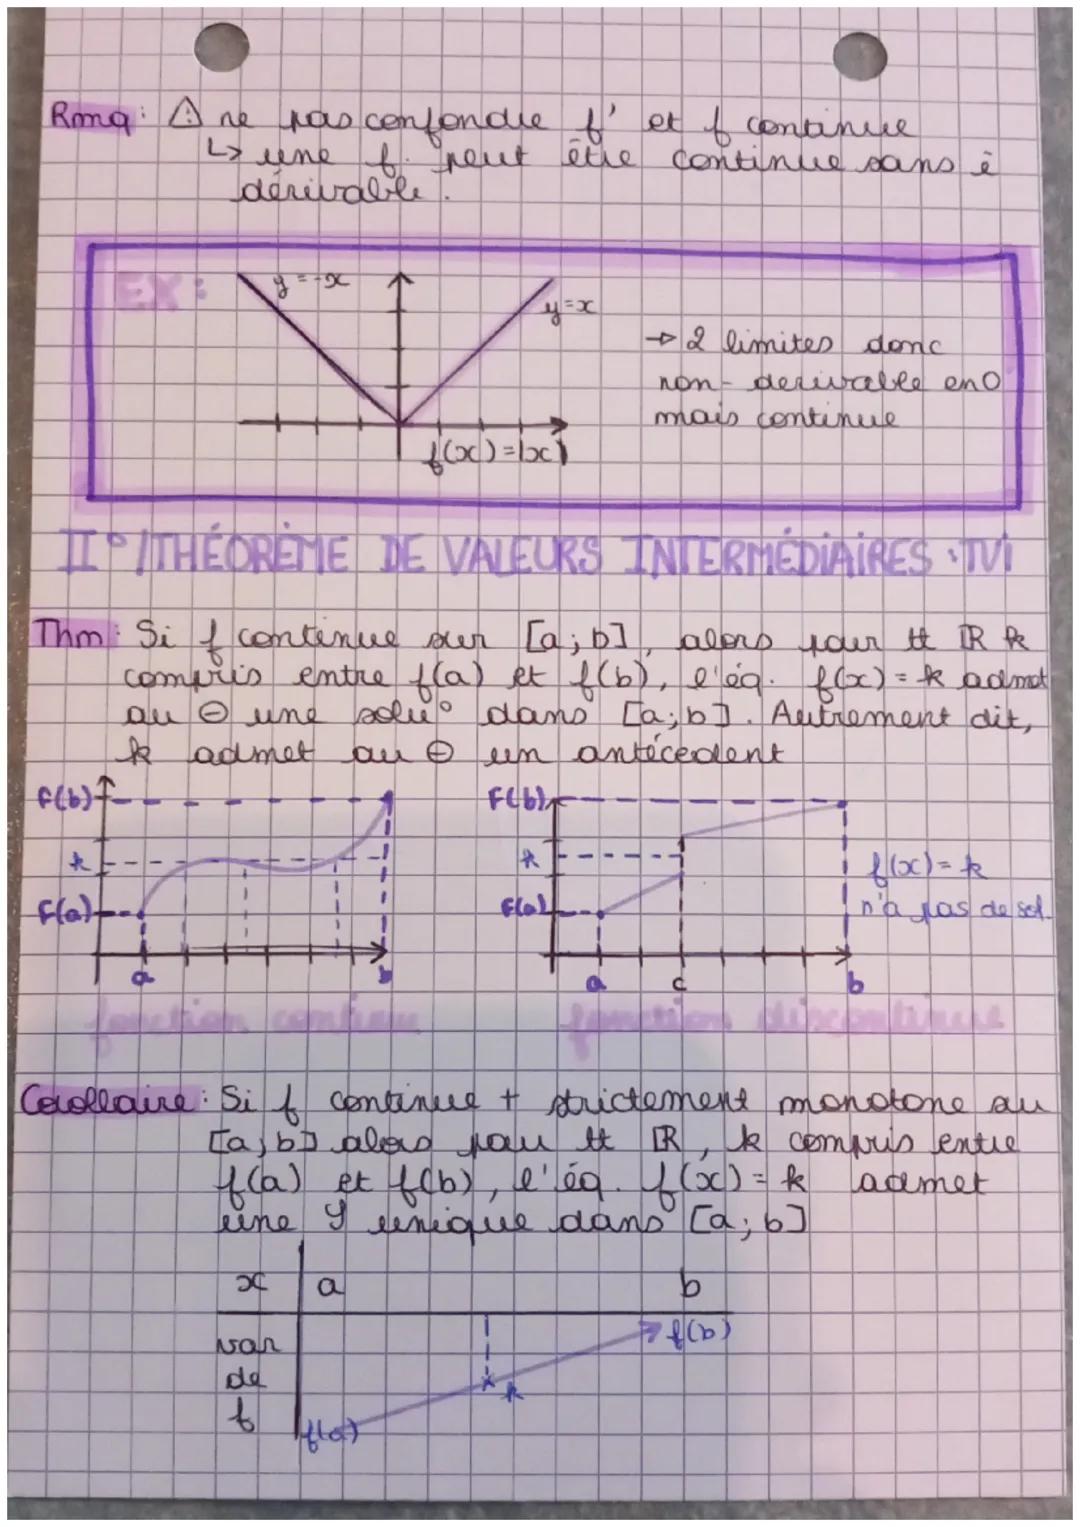 Rmq: ⚠ ne pas confondre f' et f continue
↳ une f. peut être continue sans ê
dérivable.
EX:
y=-x
y=x
f(x)=|x|
→ 2 limites donc
non-derivable en 0
mais continue
II°/THÉORÈME DE VALEURS INTERMÉDIAIRES : TVI
Thm: Si f continue sur [a;b], alors pour tt ℝ k
compris entre f(a) et f(b), l'éq. f(x)=k admet
au ⊖ une solu° dans [a;b]. Autrement dit,
k admet au ⊖ un antécédent
f(b)
k
f(a)
a
b
fonction continue
f(b)
k
f(a)
a
c
b
f(x)=k
n'a pas de sol.
fonction discontinue
Corollaire: Si f continue + strictement monotone au
[a;b] alors pour tt ℝ, k compris entre
f(a) et f(b), l'éq. f(x)=k admet
une S unique dans [a;b]
x a b
var
de
f
f(a)
k
f(b)